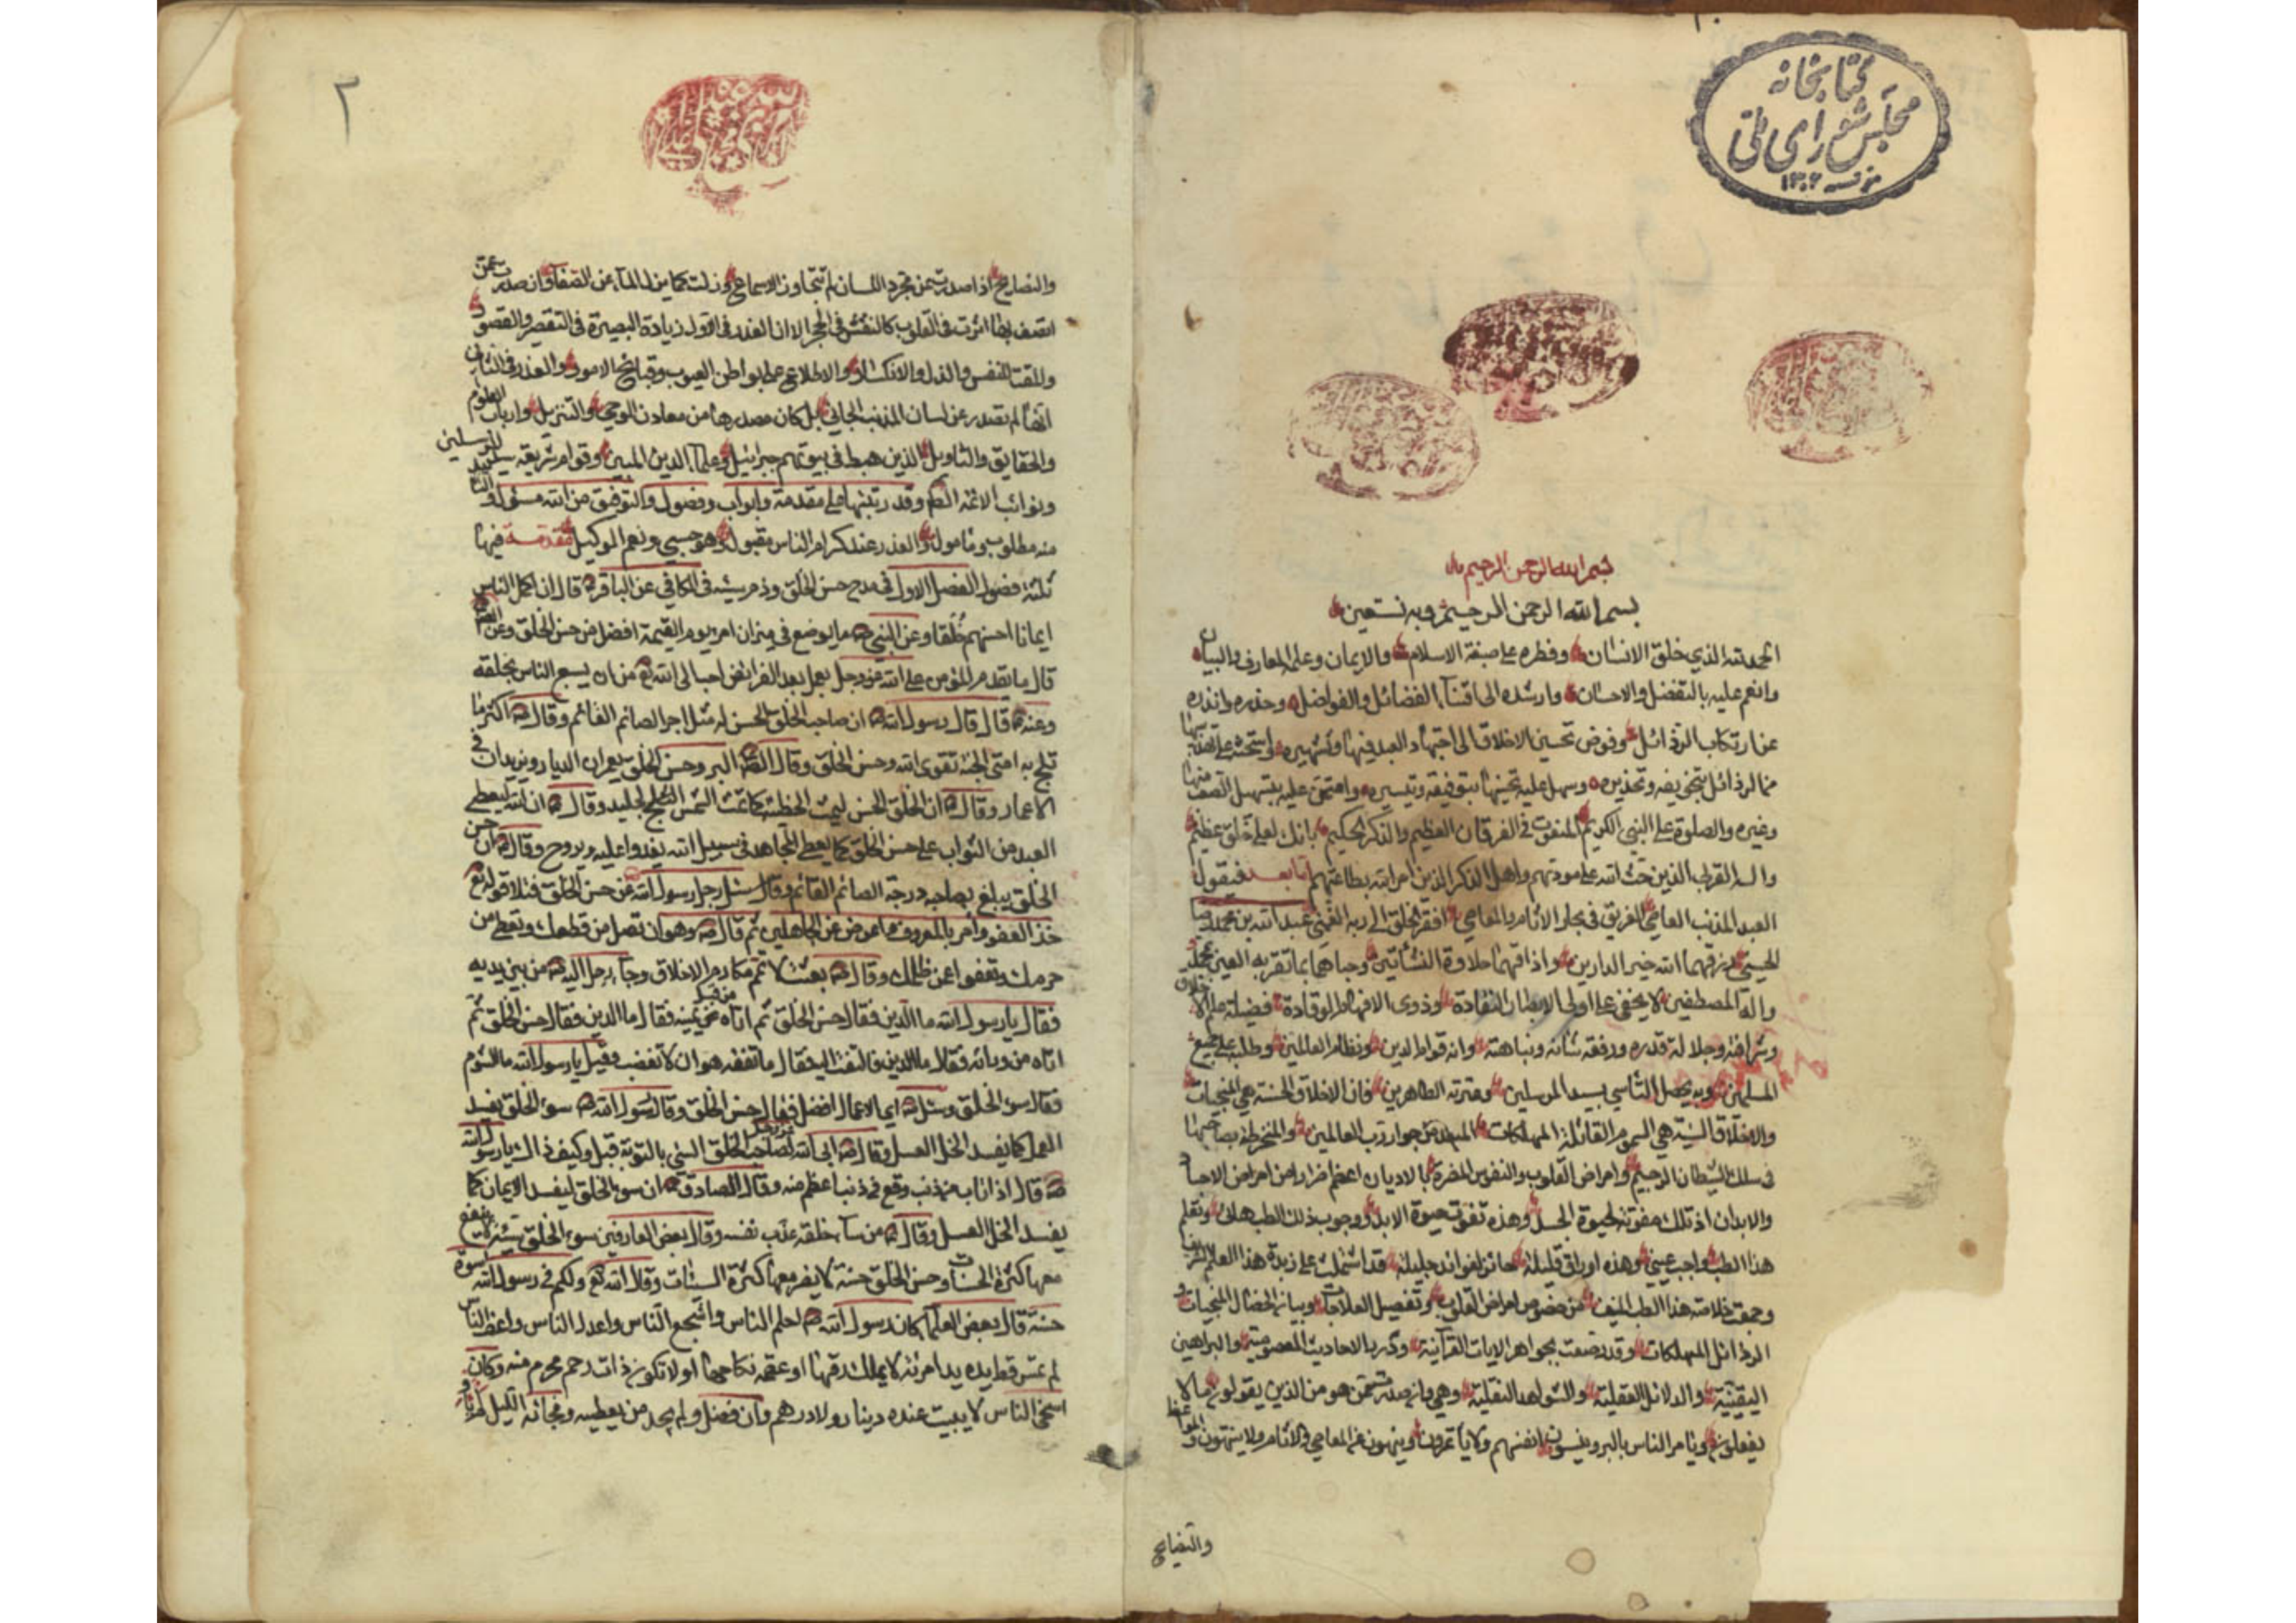 كتابخانه
مجلس شورای ملی
بسم الله الرحمن الرحيم
بسم الله الرحمن الرحيم وبه نستعين
الحمد لله الذي خلق الانسان وفطره على صبغة الاسلام والايمان وعلمه المعارف والبيان
وانعم عليه بالتفضل والاحسان وارشده الى اقتناء الفضائل والفواضل وحذره وانذره
عن ارتكاب الرذائل وفوض تحسين الاخلاق الى اجتهاد العبد فيها وتشهيره واستحثه على تهذيبها
من الرذائل بتخويفه وتحذيره وسهل عليه تحسينها بتوفيقه وتيسيره وامتحن عليه بتسهيل
وغيره والصلوة على النبي الكريم المنعوت في الفرقان العظيم والذكر الحكيم بانك لعلى خلق عظيم
واله القربى الذين حث الله على مودتهم واهل الذكر الذين امر الله بطاعتهم اما بعد فيقول
العبد المذنب العاصي الغريق في بحار الاثام والمعاصي افقر الخلق الى ربه الغني عبد الله بن محمد رضا
الحسيني رزقهما الله خير الدارين واذاقهما حلاوة النشأتين وحباهما بما تقر به العين بمحمد
واله المصطفين لا يخفى على اولي الابصار النقادة وذوي الافهام الوقادة فضيلة علم الاخلاق
وشرافته وجلالة قدره ورفعة شانه ونباهته وانه قوام الدين ونظام العالمين وطلبه على جميع
المسلمين وبه يحصل التاسي بسيد المرسلين وعترته الطاهرين فان الاخلاق الحسنة هي المنجيات
والاخلاق السيئة هي السموم القاتلة المهلكات المبعدة من جوار رب العالمين والمنخرطة بصاحبها
في سلك الشيطان الرجيم وامراض القلوب والنفوس المضرة بالاديان اعظم ضرارا من امراض الاجساد
والابدان اذ تلك مفوتة لحيوة الجسد وهذه تفوت حيوة الابد ووجوب ذلك الطب هلائي وتعلم
هذا الطب واجب عيني وهذه اوراق قليلة حائزة لفوائد جليلة قد اشتملت على زبدة هذا العلم الشريف
وجمعت خلاصة هذا الطب المنيف من خصوص امراض القلوب وتفصيل العلاجات وبيان الخصال المنجيات و
الرذائل المهلكات وقد رصعت بجواهر الايات القرآنية ودرر بالاحاديث المعصومية والبراهين
اليقينية والدلائل العقلية والشواهد النقلية وهي وان صدرت ممن هو من الذين يقولون ما لا
يفعلون ويامر الناس بالبر وينسون انفسهم ولا ياتمرون وينهون عن المعاصي والاثام ولا ينتهون والمواعظ
والنصايح
٢
والنصايح اذا صدرت من مجرد اللسان لم تتجاوز الاسماع وزلت كما يزل الماء عن الصفا وان صدرت عمن
اتصف بها اثرت في القلوب كالنقش في الحجر الا ان العذر في الاول زيادة البصيرة في التقصير والقصور
والمقت للنفس والذل والانكسار والاطلاع على بواطن العيوب وقبائح الامور والعذر في الثاني
انها لم تصدر عن لسان المذنب الجاني بل كان مصدرها من معادن الوحي والتنزيل وارباب العلوم
والحقايق والتاويل الذين هبط في بيوتهم جبرائيل وعلماء الدين المبين وقوام شريعة سيد المرسلين
ونوائب الائمة وقد رتبتها على مقدمة وابواب وفصول والتوفيق من الله مسئول و
منه مطلوب ومامول والعذر عند كرام الناس مقبول وهو حسبي ونعم الوكيل مقدمة فيها
ثلثة فصول الفصل الاول في مدح حسن الخلق وذم سيئه في الكافي عن الباقر قال ان اكمل الناس
ايمانا احسنهم خلقا وعن النبي ما يوضع في ميزان امرء يوم القيمة افضل من حسن الخلق وعن
قال ما يقدم المؤمن على الله عز وجل بعمل بعد الفرائض احب الى الله تع من ان يسع الناس بخلقه
وعنه قال قال رسول الله ان صاحب الخلق الحسن له مثل اجر الصائم القائم وقال اكثر ما
تلج به امتي الجنة تقوى الله وحسن الخلق وقال البر وحسن الخلق يعمران الديار ويزيدان في
الاعمار وقال ان الخلق الحسن ليميث الخطيئة كما تميث الشمس الجليد وقال ان الله ليعطي
العبد من الثواب على حسن الخلق كما يعطي المجاهد في سبيل الله يغدوا عليه ويروح وقال ان حسن
الخلق يبلغ بصاحبه درجة الصائم القائم وقال سئل رجل رسول الله عن حسن الخلق فتلا قوله تع
خذ العفو وامر بالمعروف واعرض عن الجاهلين ثم قال وهو ان تصل من قطعك وتعطي من
حرمك وتعفوا عن ظلمك وقال بعثت لاتمم مكارم الاخلاق وجاء رجل اليه من بين يديه
فقال يا رسول الله ما الدين فقال حسن الخلق ثم اتاه من قبل يمينه فقال ما الدين فقال حسن الخلق ثم
اتاه من ورائه فقال ما الدين فالتفت اليه فقال ما تفقه هو ان لا تغضب وقيل يا رسول الله ما الشوم
فقال سوء الخلق وسئل اي الاعمال افضل فقال حسن الخلق وقال رسول الله سوء الخلق يفسد
العمل كما يفسد الخل العسل وقال ابى الله عز وجل لصاحب الخلق السيئ بالتوبة قيل وكيف ذاك يا رسول الله
قال اذا تاب من ذنب وقع في ذنب اعظم منه وقال الصادق ان سوء الخلق ليفسد الايمان كما
يفسد الخل العسل وقال من ساء خلقه عذب نفسه وقال بعض العارفين سوء الخلق سيئة لا ينفع
معها كثرة الحسنات وحسن الخلق حسنة لا يضر معها كثرة السيئات وقال الله تع ولكم في رسول الله اسوة
حسنة قال بعض العلماء كان رسول الله احلم الناس واشجع الناس واعدل الناس واعف الناس
لم تمس قط يده يد امرئة لا يملك رقها او عصمة نكاحها او لا تكون ذات رحم محرم منه وكان
اسخى الناس لا يبيت عنده دينار ولا درهم وان فضل ولم يجد من يعطيه وفجائه الليل